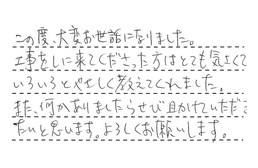 この度、大変お世話になりました。
工事をしに来てくださった方はとても気さくで
いろいろとやさしく教えてくれました。
また、何かありましたらぜひ助けていただき
たいと思います。よろしくお願いします。